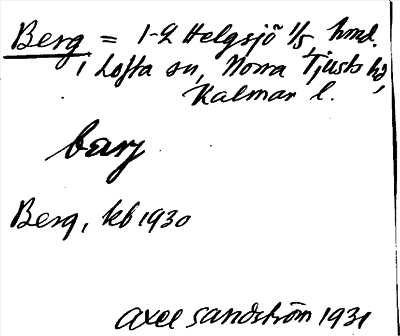 Berg = 1-2 Helgsjö 1/5 hmd.
i Lofta sn, Norra Tjusts hd,
Kalmar l.
barj
Berg, kb 1930
Axel Sandström 1931